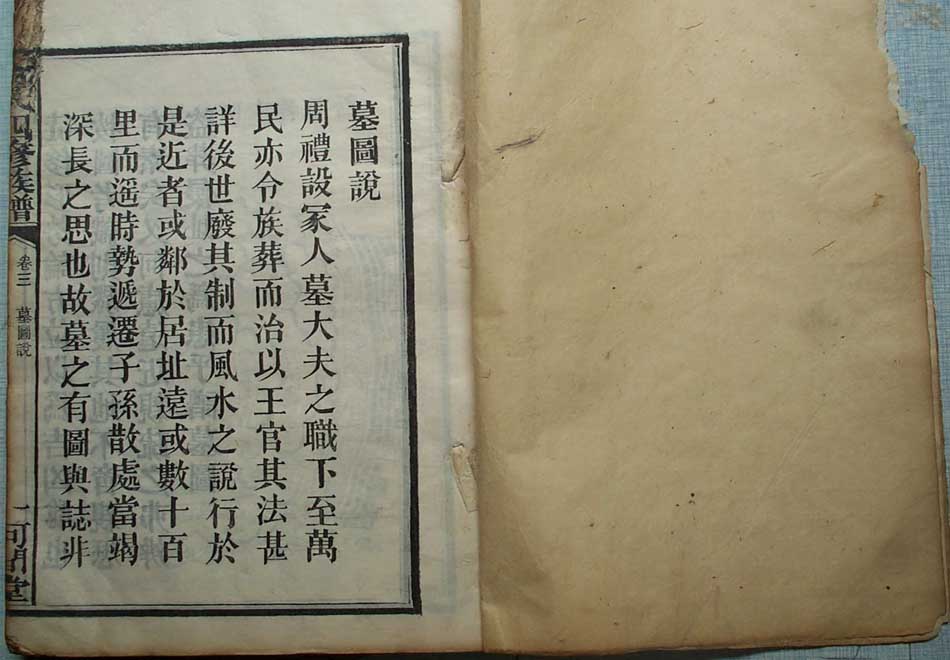 墓圖說
周禮設冢人墓大夫之職下至萬
民亦令族葬而治以王官其法甚
詳後世廢其制而風水之說行於
是近者或鄰於居址遠或數十百
里而遥時勢遞遷子孫散處當竭
深長之思也故墓之有圖與誌非
氏四修族譜
卷三
墓圖說
一
可閒堂